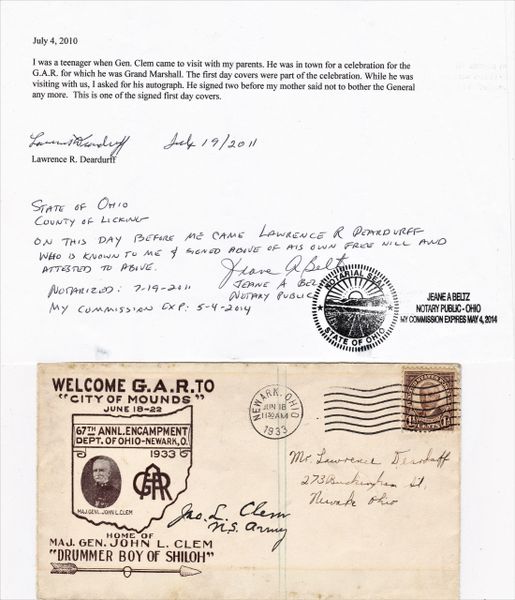 July 4, 2010
I was a teenager when Gen. Clem came to visit with my parents. He was in town for a celebration for the
G.A.R. for which he was Grand Marshall. The first day covers were part of the celebration. While he was
visiting with us, I asked for his autograph. He signed two before my mother said not to bother the General
any more. This is one of the signed first day covers.
July 19/2011
Lawrence R. Deardurff
STATE OF OHIO
COUNTY OF LICKING
ON THIS DAY BEFORE ME CAME LAWRENCE R DEARDURFF
WHO IS KNOWN TO ME & SIGNED ABOVE OF HIS OWN FREE WILL AND
ATTESTED TO ABOVE.
Jeane A Beltz
JEANE A BELTZ
NOTARIZED: 7-19-2011
NOTARY PUBLIC
MY COMMISSION EXP: 5-4-2014
NOTARIAL SEAL
STATE OF OHIO
JEANE A BELTZ
NOTARY PUBLIC - OHIO
MY COMMISSION EXPIRES MAY 4, 2014
WELCOME G.A.R. TO
"CITY OF MOUNDS"
JUNE 18-22
67TH ANNL. ENCAMPMENT
DEPT. OF OHIO-NEWARK, O.
1933
GAR
MAJ. GEN. JOHN L. CLEM
HOME OF
MAJ. GEN. JOHN L. CLEM
"DRUMMER BOY OF SHILOH"
NEWARK, OHIO
JUN 18
1933
Jno. L. Clem
U.S. Army
Mr. Lawrence Deardurff
273 Buckingham St,
Newark Ohio